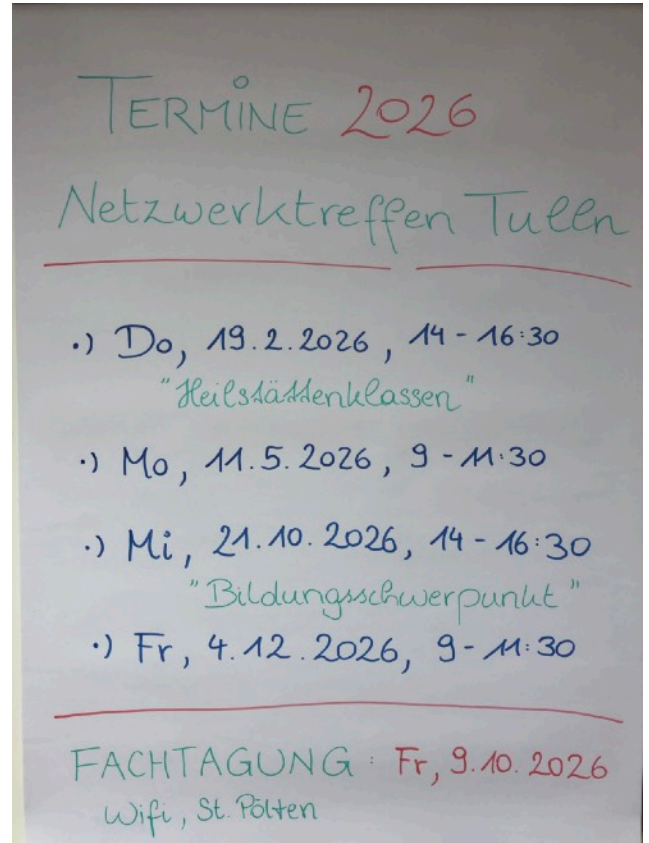 TERMINE 2026
Netzwerktreffen Tulln
.) Do, 19.2.2026, 14 - 16:30
"Heilstättenklassen"
.) Mo, 11.5.2026, 9 - 11:30
.) Mi, 21.10.2026, 14 - 16:30
"Bildungsschwerpunkt"
.) Fr, 4.12.2026, 9 - 11:30
FACHTAGUNG : Fr, 9.10.2026
Wifi, St. Pölten